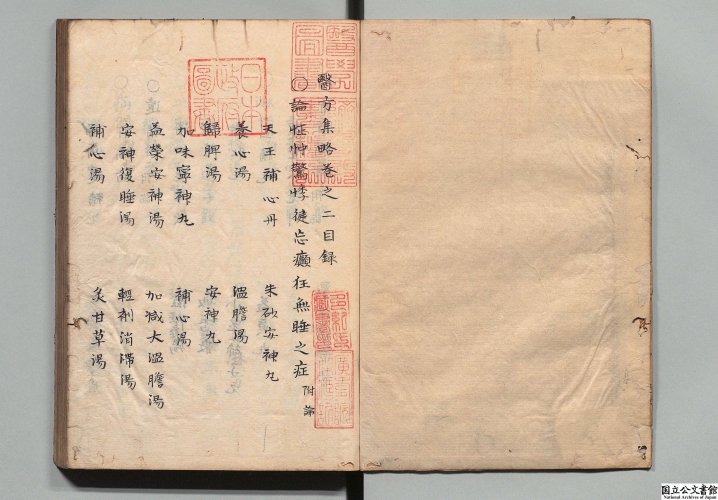 醫方集略卷之二目録
○論怔忡驚悸徤忘癲狂無睡之症 附論
天王補心丹 朱砂安神丸
養心湯 温膽湯
歸脾湯 安神丸
加味寧神丸 補心湯
益榮安神湯 加減大温膽湯
安神復睡湯 輕剤消滞湯
補心湯 炙甘草湯
日本政府圖書
国立公文書館
National Archives of Japan